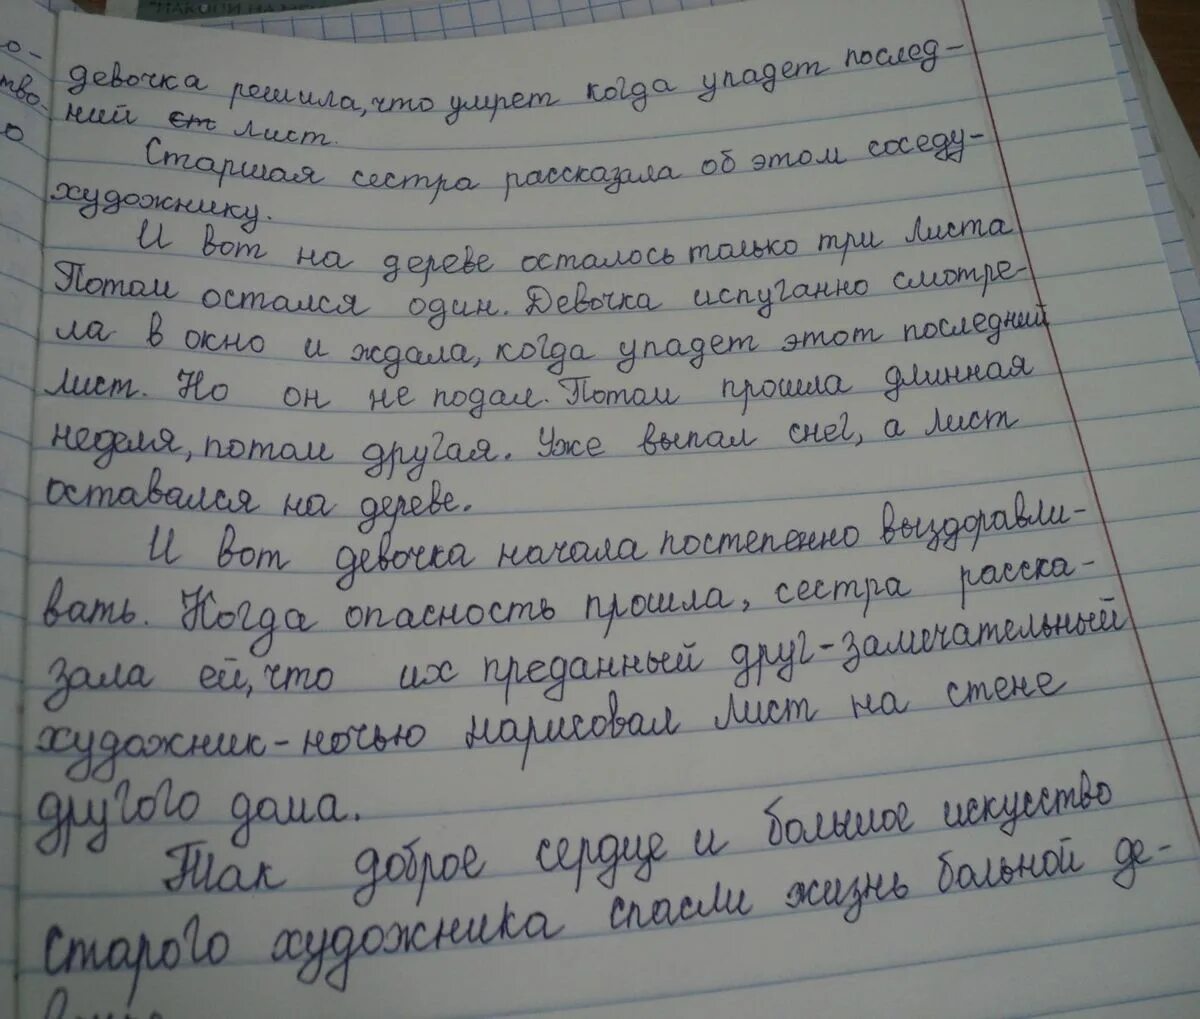 "НАКОПИ НА МЕЧ
о-
тво-
о
девочка решила, что умрет когда упадет послед-
ний ст лист.
Старшая сестра рассказала об этом соседу-
художнику.
И вот на дереве осталось только три листа
Потом остался один. Девочка испуганно смотре-
ла в окно и ждала, когда упадет этот последний
лист. Но он не подал. Потом прошла длинная
неделя, потом другая. Уже выпал снег, а лист
оставался на дереве.
И вот девочка начала постепенно выздоравли-
вать. Когда опасность прошла, сестра расска-
зала ей, что их преданный друг-замечательный
художник-ночью нарисовал лист на стене
другого дома.
Так доброе сердце и большое искусство
старого художника спасли жизнь больной де-